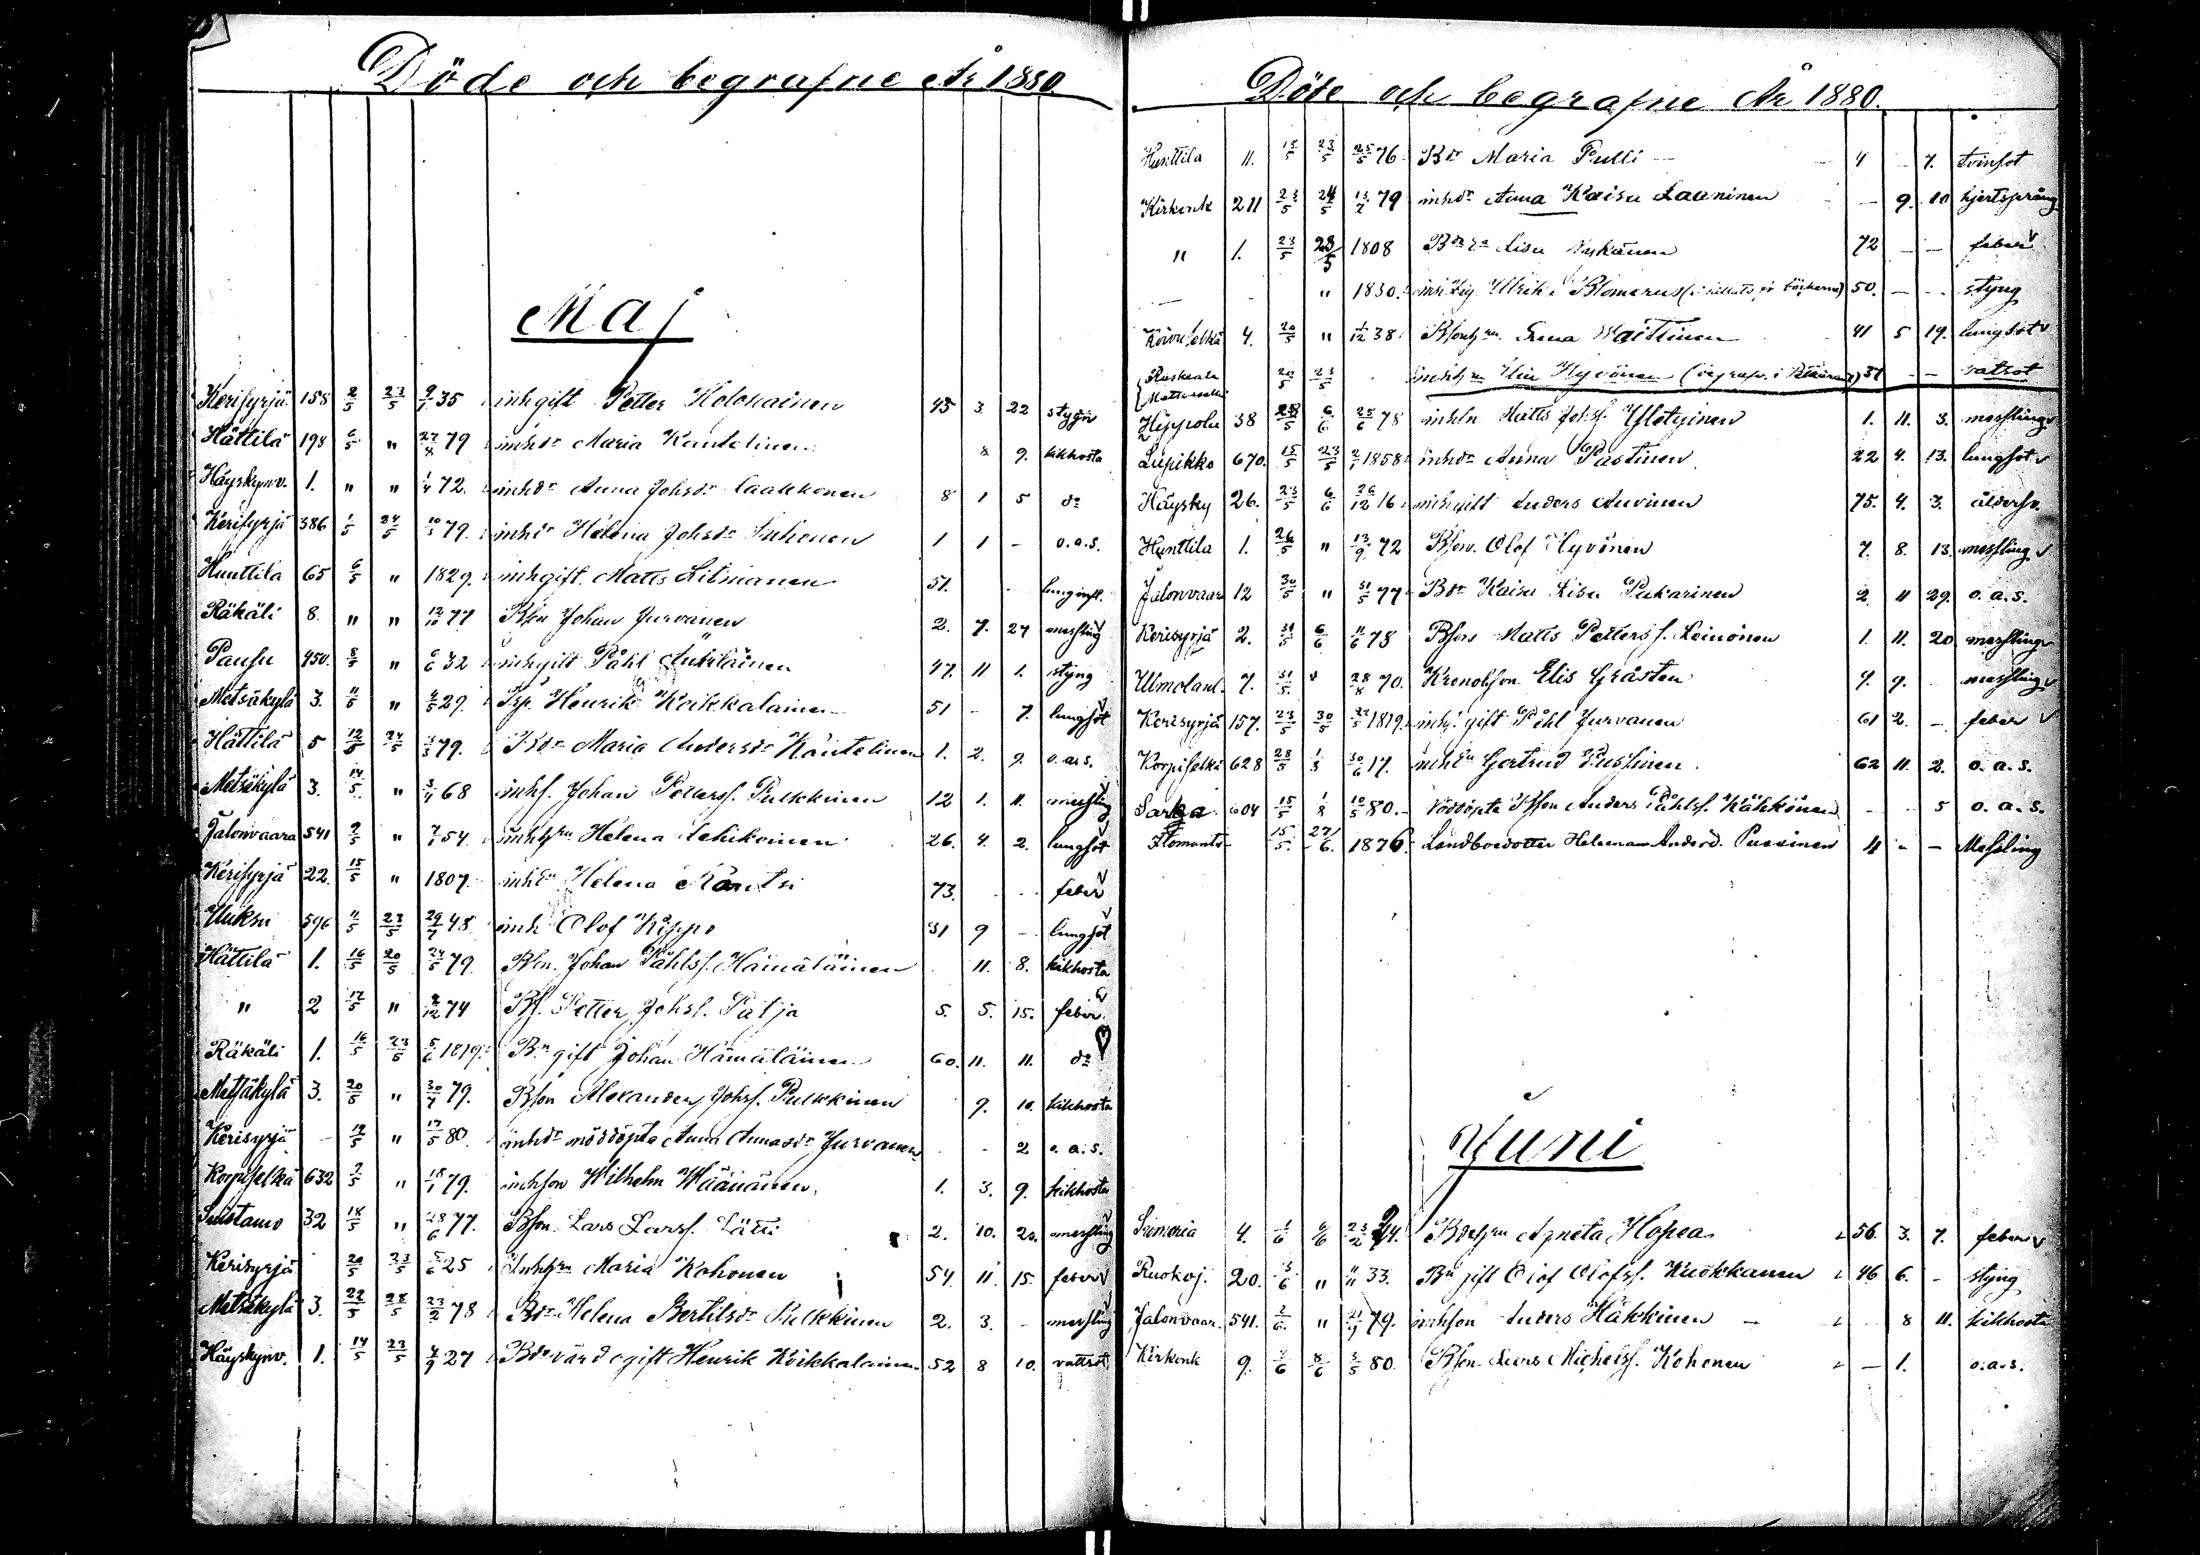 Döde och begrafne År 1880
Maj
Kerisyrjä 158 2/5 23/5 9/1 35 inhgift Petter Kolokainen 45 3 22 styng
Hättilä 198 6/5 " 27/8 79 inhdr Maria Kautelinen 8 9. kikhosta
Häyskynv. 1. " " 1/4 72. inhdr Anna Johsdr Laakkonen 8 1 5 do
Kerisyrjä 386 1/5 24/5 10/3 79. inhdr Helena Johsdr 1 1 - o.a.s.
Hunttila 65 6/5 " 1829. inhgift Matts 51. -
Räkäli 8. " " 77 Bson Johan Jurvanen 2. 7. 27 messling
Pausu 450. 8/5 " 6/6 32 inhgift Påhl 47. 11 1. styng
Metsäkylä 3. 11/5 " 4/5 29. Henrik Koikkalainen 51 - 7. lungsot
Hättilä 5 12/5 24/5 3/3 79. Bdr Maria Andersdr Kautelinen 1. 2. 9 o.a.s.
Metsäkylä 3. 14/5 " 3/4 68 inhs. Johan Petterss. Pulkkinen 12 1. 11. messling
Jalonvaara 541 9/5 " 7/1 54. inhhru Helena Lehikoinen 26. 4. 2. lungsot
Kerisyrjä 22. 15/5 " 1807. Helena 73. - - feber
Uuksu 596 11/5 23/5 29/7 48 inh Olof Kippo 31 9 - lungsot
Hättilä 1. 16/5 20/5 24/5 79. Bsn. Johan Påhlss. Hämäläinen 11. 8. kikhosta
" 2 17/5 " 2/12 74 Bs. Petter Johss. Patja 5. 5. 15. feber
Räkäli 1. 16/5 23/5 5/6 1819. Bn gift Johan Hämäläinen 60. 11. 11. do
Metsäkylä 3. 20/5 " 30/7 79. Bson Alexander Johss. Pulkkinen 9. 10. kikhosta
Kerisyrjä - 19/5 " 17/5 80. inhdr nöddöpta Anna Annasdr Jurvanen - - 2 o.a.s.
Korpiselkä 632 9/5 " 18/1 79. inhson Wilhelm Wäänänen. 1. 3. 9. kikhosta
Suistamo 32 18/5 " 28/6 77. Bson Lars Larss. Lätti 2. 10. 20. messling
Kerisyrjä 20/5 23/5 5/6 25 Inhhru Maria Kohonen 54 11. 15. feber
Metsäkylä 3. 22/5 28/5 23/2 78 Bdr Helena Bertilsdr Pulkkinen 2. 3. - messling
Häyskynv. 1. 14/5 23/5 4/9 27 Bdevärd ogift Henrik Koikkalainen 52 8 10. vattsot
Döde och begrafne År 1880.
Hunttila 11. 18/5 23/5 25/5 76 Bdr Maria Pulli 4 - 7. tvinsot
Kirkonk 211 23/5 24/5 13/7 79 inhdr Anna Kaisa Laaninen - 9. 10 hjertsprång
" 1. 23/5 28/5 1808 Lisa 72 - - feber
" 1830. Ulrika Blomerus 50. - - styng
Koivuselkä 4. 20/5 " 1/12 38. Wäittinen 41 5 19. lungsot
Ruskeala 20/5 23/5 Hyvönen 51 - - vatsot
Hippola 38 28/5 6/6 25/6 78 Matts Johss. 1. 11. 3. messling
Lupikko 670. 15/5 23/5 2/1 1858. inhdr Anna Pastinen 22 4. 13. lungsot
Häysky 26. 23/5 6/6 26/12 16. inhgift Anders Auvinen 75. 4. 3. åldersv.
Hunttila 1. 26/5 " 13/9 72 Bson. Olof Hyvönen 7. 8. 13. messling
Jalonvaar 12 30/5 " 31/5 77 Bdr Kaisa Lisa Pukarinen 2 11 29. o.a.s.
Kerisyrjä 2. 31/5 6/6 11/6 78 Bson Matts Petterss. Leinonen 1. 11. 20 messling
Ulmolant. 7. 31/5 " 28/8 70. Kronobson Elis Gråsten 9. 9. messling
Kerisyrjä 157. 23/5 30/5 22/3 1819. inh. gift Påhl Jurvanen 61 2. - feber
Korpiselkä 628 28/5 30/6 17. Gertrud Pussinen. 62 11. 2. o.a.s.
Sarka 604 15/5 10/5 80. Nöddöpta Bson Anders Påhlss. Kähkönen - - 5 o.a.s.
Ilomants- 15/5 27/6. 1876. Landboedotter Helena Andersd. Pussinen 4 - - Messling
Juni
4. 1/6 6/6 23/2 24. Agneta Hopea 56. 3. 7. feber
Ruokoj. 20. 3/6 " 11 33. Bn gift Olof Olofss. Kuokkanen 46 6. - styng
Jalonvaar. 541. 2/6 " 21/9 79. inhson Anders Häkkinen - 8 11. kikhosta
Kirkonk 9. 7/6 8/6 3/5 80. Bson Lars Michelss. Kohonen - 1. o.a.s.